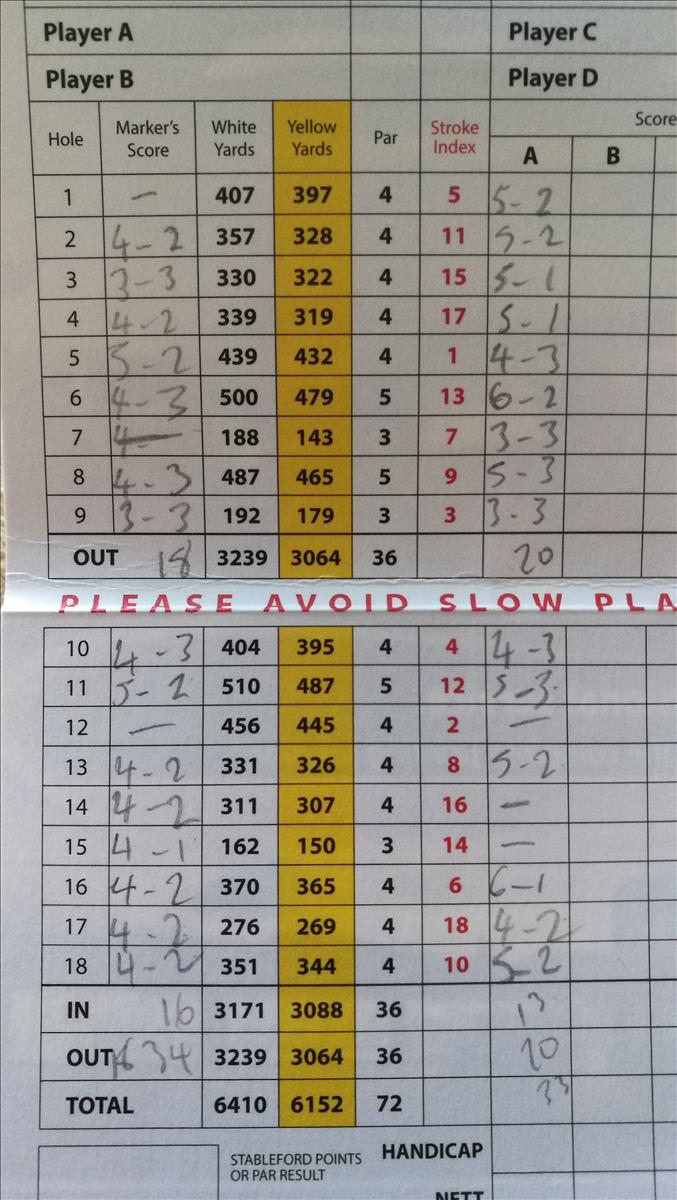 Player A Player C
Player B Player D
Hole Marker's Score White Yards Yellow Yards Par Stroke Index Score
A B
1 — 407 397 4 5 5-2
2 4-2 357 328 4 11 5-2
3 3-3 330 322 4 15 5-1
4 4-2 339 319 4 17 5-1
5 5-2 439 432 4 1 4-3
6 4-3 500 479 5 13 6-2
7 4— 188 143 3 7 3-3
8 4-3 487 465 5 9 5-3
9 3-3 192 179 3 3 3-3
OUT 18 3239 3064 36 20
PLEASE AVOID SLOW PLA
10 4-3 404 395 4 4 4-3
11 5-2 510 487 5 12 5-3
12 — 456 445 4 2 —
13 4-2 331 326 4 8 5-2
14 4-2 311 307 4 16 —
15 4-1 162 150 3 14 —
16 4-2 370 365 4 6 6-1
17 4-2 276 269 4 18 4-2
18 4-2 351 344 4 10 5-2
IN 16 3171 3088 36 13
OUT 34 3239 3064 36 20
TOTAL 6410 6152 72 33
STABLEFORD POINTS HANDICAP
OR PAR RESULT
NETT